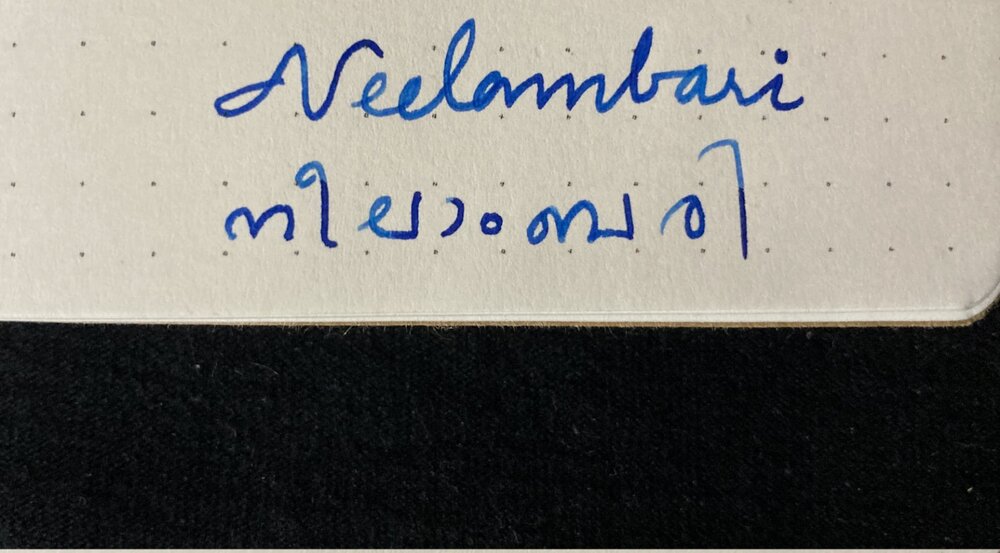 Neelambari
നീലാംബരി